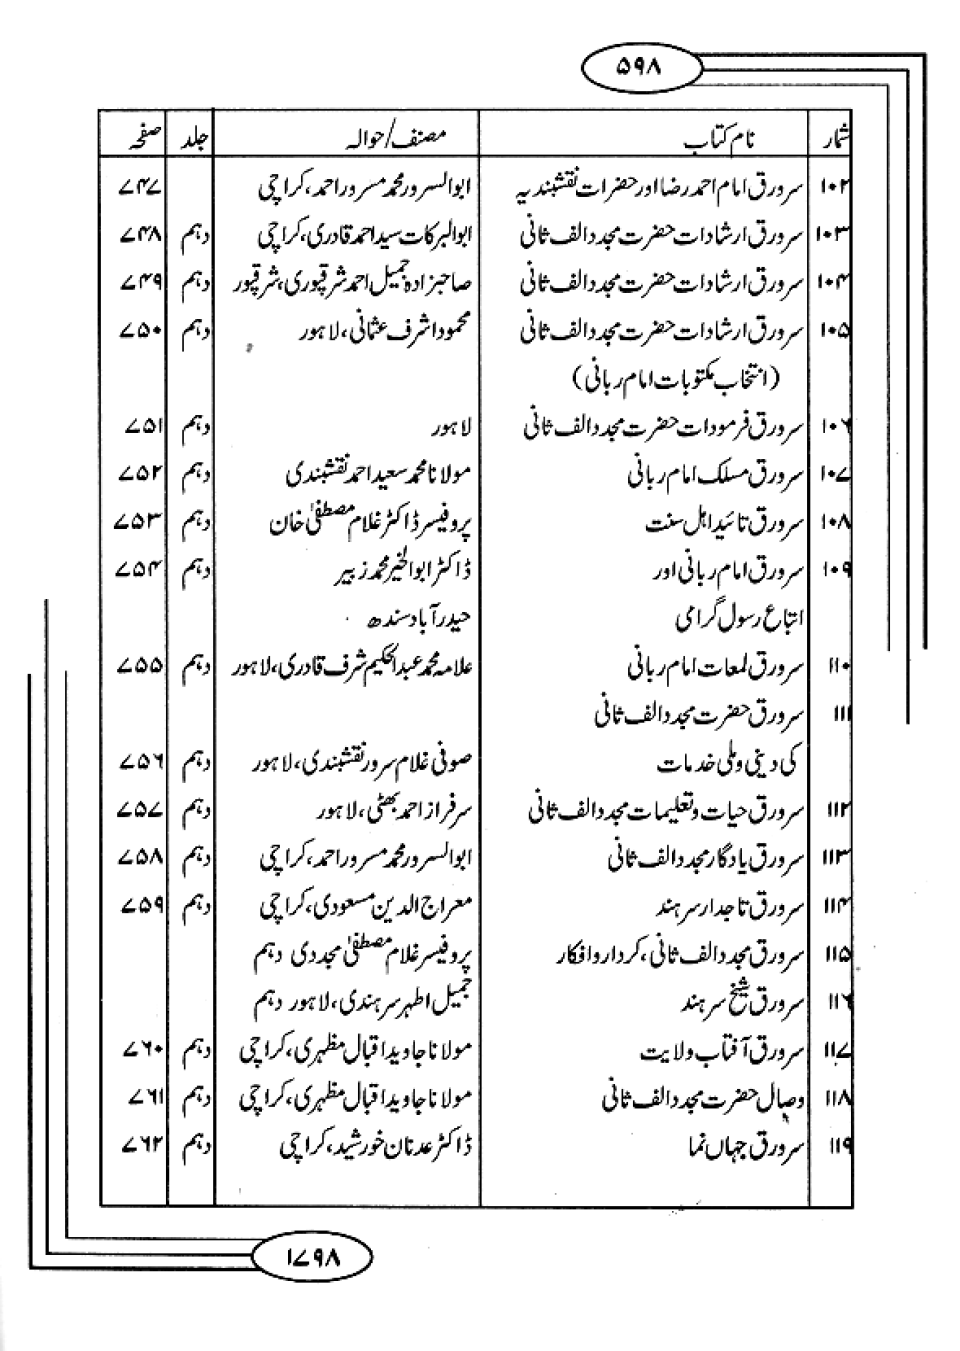 ۵۹۸
شمار نام کتاب مصنف/حوالہ جلد صفحہ
۱۰۲ سرورق امام احمد رضا اور حضرات نقشبندیہ ابوالسرور محمد مسرور احمد، کراچی ۷۴۷
۱۰۳ سرورق ارشادات حضرت مجدد الف ثانی ابوالبرکات سید احمد قادری، کراچی دہم ۷۴۸
۱۰۴ سرورق ارشادات حضرت مجدد الف ثانی صاحبزادہ جمیل احمد شرقپوری، شرقپور دہم ۷۴۹
۱۰۵ سرورق ارشادات حضرت مجدد الف ثانی محمود اشرف عثمانی، لاہور دہم ۷۵۰
(انتخاب مکتوبات امام ربانی)
۱۰۶ سرورق فرمودات حضرت مجدد الف ثانی لاہور دہم ۷۵۱
۱۰۷ سرورق مسلک امام ربانی مولانا محمد سعید احمد نقشبندی دہم ۷۵۲
۱۰۸ سرورق تائید اہل سنت پروفیسر ڈاکٹر غلام مصطفیٰ خان دہم ۷۵۳
۱۰۹ سرورق امام ربانی اور ڈاکٹر ابوالخیر محمد زبیر دہم ۷۵۴
اتباع رسول گرامی حیدرآباد سندھ
۱۱۰ سرورق لمعات امام ربانی علامہ محمد عبدالحکیم شرف قادری، لاہور دہم ۷۵۵
۱۱۱ سرورق حضرت مجدد الف ثانی
کی دینی و ملی خدمات صوفی غلام سرور نقشبندی، لاہور دہم ۷۵۶
۱۱۲ سرورق حیات و تعلیمات مجدد الف ثانی سرفراز احمد بھٹی، لاہور دہم ۷۵۷
۱۱۳ سرورق یادگار مجدد الف ثانی ابوالسرور محمد مسرور احمد، کراچی دہم ۷۵۸
۱۱۴ سرورق تاجدار سرہند معراج الدین مسعودی، کراچی دہم ۷۵۹
۱۱۵ سرورق مجدد الف ثانی، کردار و افکار پروفیسر غلام مصطفیٰ مجددی دہم
۱۱۶ سرورق شیخ سرہند جمیل اطہر سرہندی، لاہور دہم
۱۱۷ سرورق آفتاب ولایت مولانا جاوید اقبال مظہری، کراچی دہم ۷۶۰
۱۱۸ وصال حضرت مجدد الف ثانی مولانا جاوید اقبال مظہری، کراچی دہم ۷۶۱
۱۱۹ سرورق جہاں نما ڈاکٹر عدنان خورشید، کراچی دہم ۷۶۲
۱۷۹۸